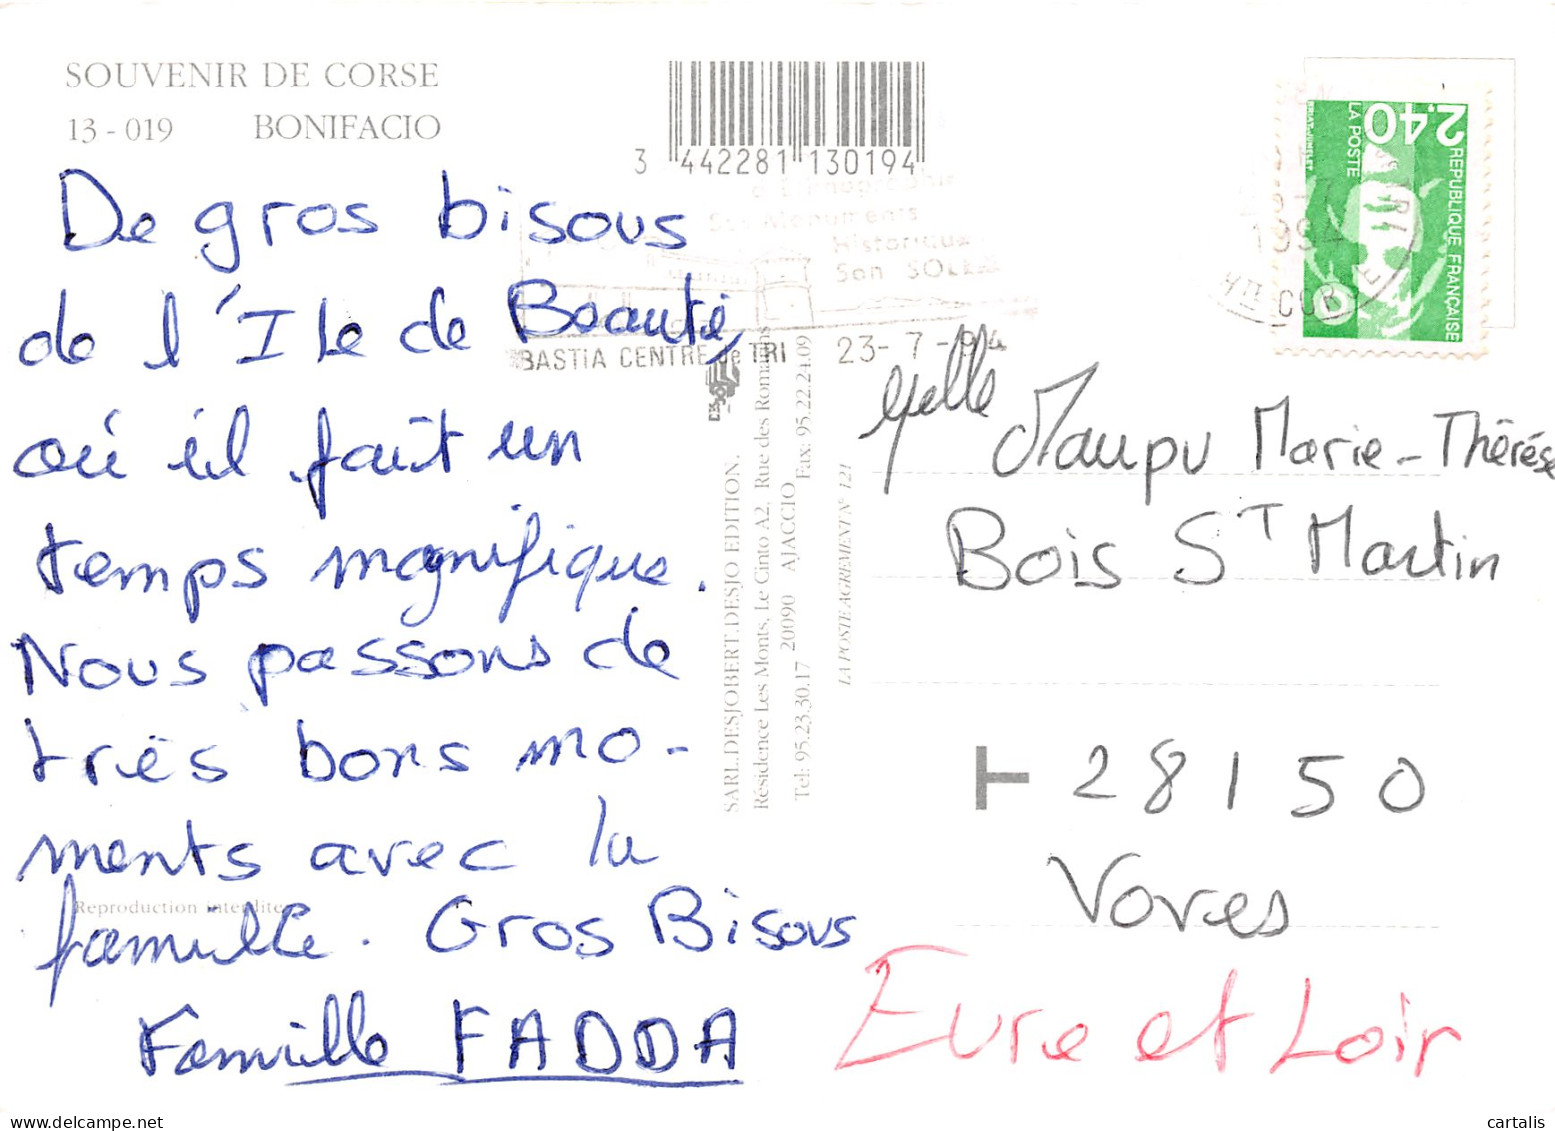 SOUVENIR DE CORSE
13 - 019 BONIFACIO
3 442281 130194
De gros bisous
de l'Ile de Beauté,
où il fait un
temps magnifique.
Nous passons de
très bons mo-
ments avec la
famille. Gros Bisous
Famille FADDA
Reproduction interdite
d'Ethnographie
Ses Monuments
Historiques
Son SOLEIL
BASTIA CENTRE de TRI 23-7-94
SARL.DESJOBERT.DESJO EDITION.
Résidence Les Monts, Le Cinto A2, Rue des Romarins
20090 AJACCIO
Tel: 95.23.30.17 Fax: 95.22.24.09
LA POSTE AGREMENT N° 121
2,40
LA POSTE
REPUBLIQUE FRANÇAISE
BRIAT-JUMELET
1994
HTE CORSE
Melle Maupu Marie-Thérèse
Bois St Martin
T 28150
Voves
Eure et Loir